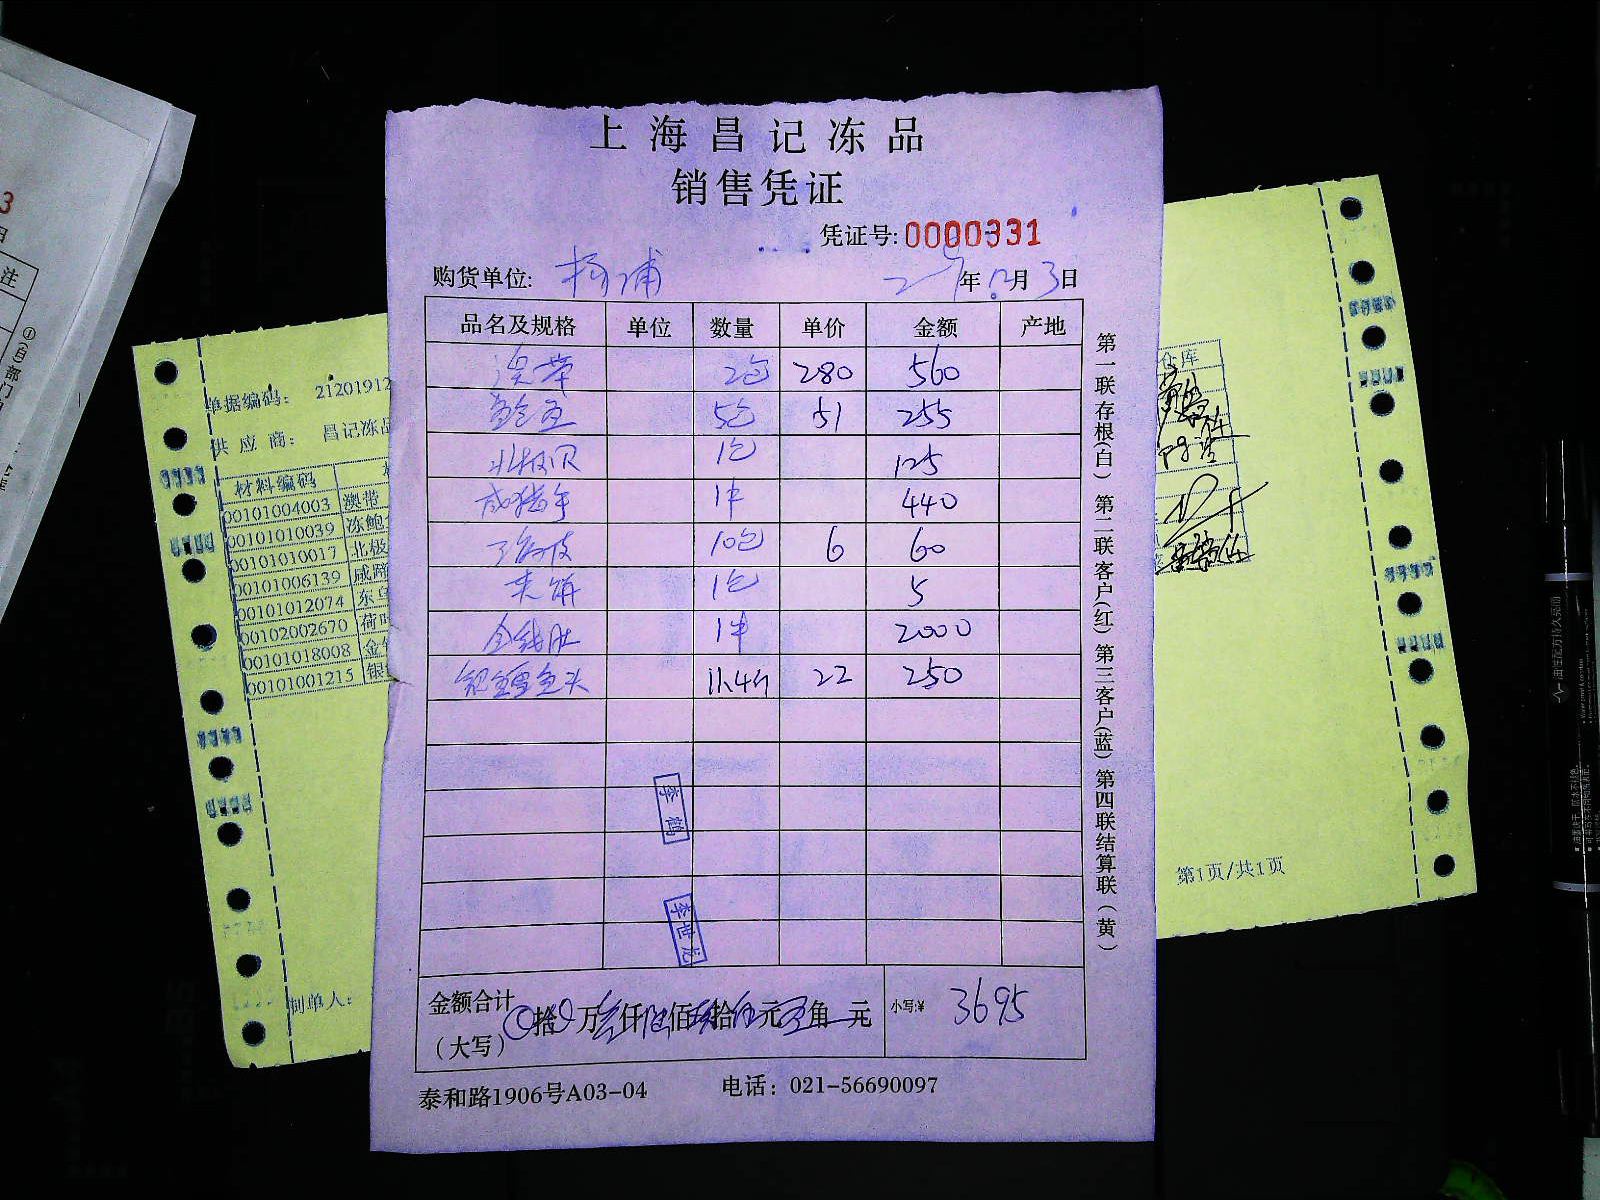 上海昌记冻品
销售凭证
凭证号:0000331
购货单位: 杨浦 年12月3日
品名及规格 单位 数量 单价 金额 产地
澳带 2包 280 560
鲍鱼 5包 51 255
北极贝 1包 125
咸猪手 1件 440
10包 6 60
夹饼 1包 5
金钱肚 1件 2000
银鳕鱼头 11.4斤 22 250
李鹤
李世龙
金额合计
(大写)
拾 万叁仟陆佰玖拾伍元 角 元
小写:¥ 3695
泰和路1906号A03-04 电话: 021-56690097
第一联存根(白) 第二联客户(红) 第三客户(蓝) 第四联结算联(黄)
单据编码: 21201912
供应商: 昌记冻品
材料编码
00101004003 澳带
00101010039 冻鲍
00101010017 北极
00101006139 咸蹄
00101012074 东
00102002670 荷
00101018008 金
00101001215 银
制单人:
仓库
第1页/共1页
3
日
注
①(白)部门